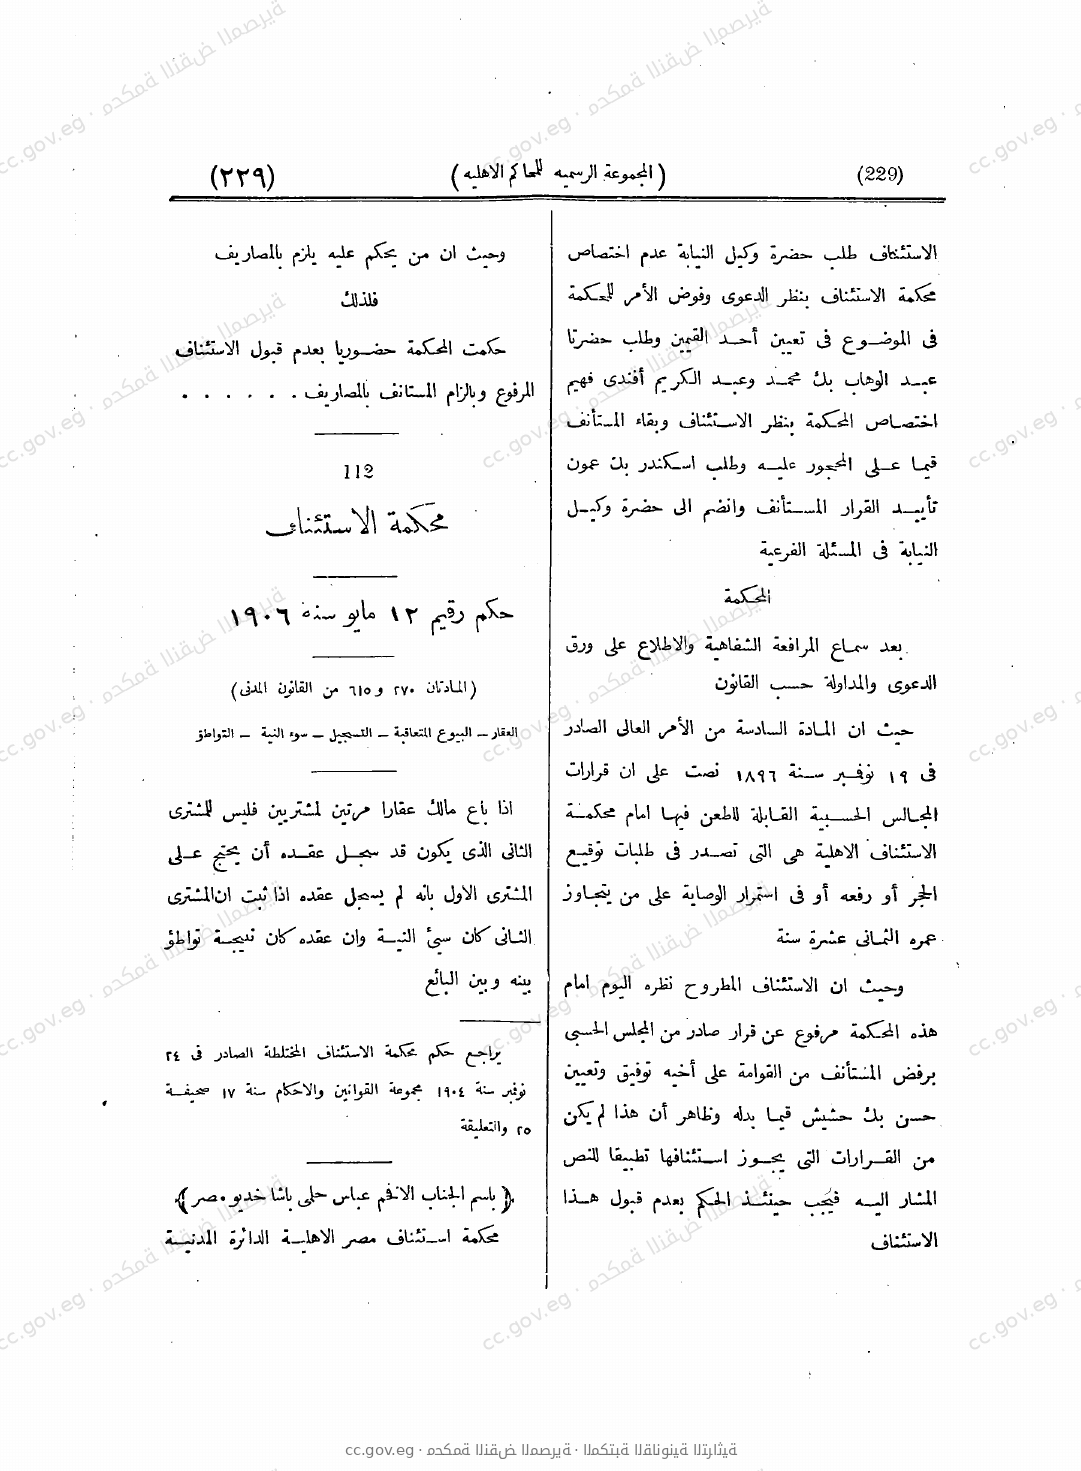 (229)
( المجموعة الرسميه للمحاكم الاهليه )
(٢٢٩)
الاستئناف طلب حضرة وكيل النيابة عدم اختصاص
محكمة الاستئناف بنظر الدعوى وفوض الأمر للمحكمة
فى الموضوع فى تعيين أحد القيمين وطلب حضرتا
عبد الوهاب بك محمد وعبد الكريم أفندى فهيم
اختصاص المحكمة بنظر الاستئناف وبقاء المستأنف
قيما على المحجور عليه وطلب اسكندر بك عمون
تأييد القرار المستأنف وانضم الى حضرة وكيل
النيابة فى المسئلة الفرعية
المحكمة
بعد سماع المرافعة الشفاهية والاطلاع على ورق
الدعوى والمداولة حسب القانون
حيث ان المادة السادسة من الأمر العالى الصادر
فى ١٩ نوفمبر سنة ١٨٩٦ نصت على ان قرارات
المجالس الحسبية القابلة للطعن فيها امام محكمة
الاستئناف الاهلية هى التى تصدر فى طلبات توقيع
الحجر أو رفعه أو فى استمرار الوصاية على من يتجاوز
عمره الثمانى عشرة سنة
وحيث ان الاستئناف المطروح نظره اليوم امام
هذه المحكمة مرفوع عن قرار صادر من المجلس الحسبى
برفض المستأنف من القوامة على أخيه توفيق وتعيين
حسن بك حشيش قيما بدله وظاهر أن هذا لم يكن
من القرارات التى يجوز استئنافها تطبيقا للنص
المشار اليه فيجب حينئذ الحكم بعدم قبول هذا
الاستئناف
وحيث ان من يحكم عليه يلزم بالمصاريف
فلذلك
حكمت المحكمة حضوريا بعدم قبول الاستئناف
المرفوع وبالزام المستانف بالمصاريف . . . . . .
112
محكمة الاستئناف
حكم رقيم ١٢ مايو سنة ١٩٠٦
(المادتان ٢٧٠ و ٦١٥ من القانون المدنى)
العقار – البيوع المتعاقبة – التسجيل – سوء النية – التواطؤ
اذا باع مالك عقارا مرتين لمشتريين فليس للمشترى
الثانى الذى يكون قد سجل عقده أن يحتج على
المشترى الاول بانه لم يسجل عقده اذا ثبت ان المشترى
الثانى كان سيئ النية وان عقده كان نتيجة تواطؤ
بينه وبين البائع
يراجع حكم محكمة الاستئناف المختلطة الصادر فى ٢٤
نوفمبر سنة ١٩٠٤ مجموعة القوانين والاحكام سنة ١٧ صحيفة
٢٥ والتعليقة
( باسم الجناب الافخم عباس حلمى باشا خديو مصر )
محكمة استئناف مصر الاهلية الدائرة المدنية
cc.gov.eg · محكمة النقض المصرية · المكتبة القانونية التراثية